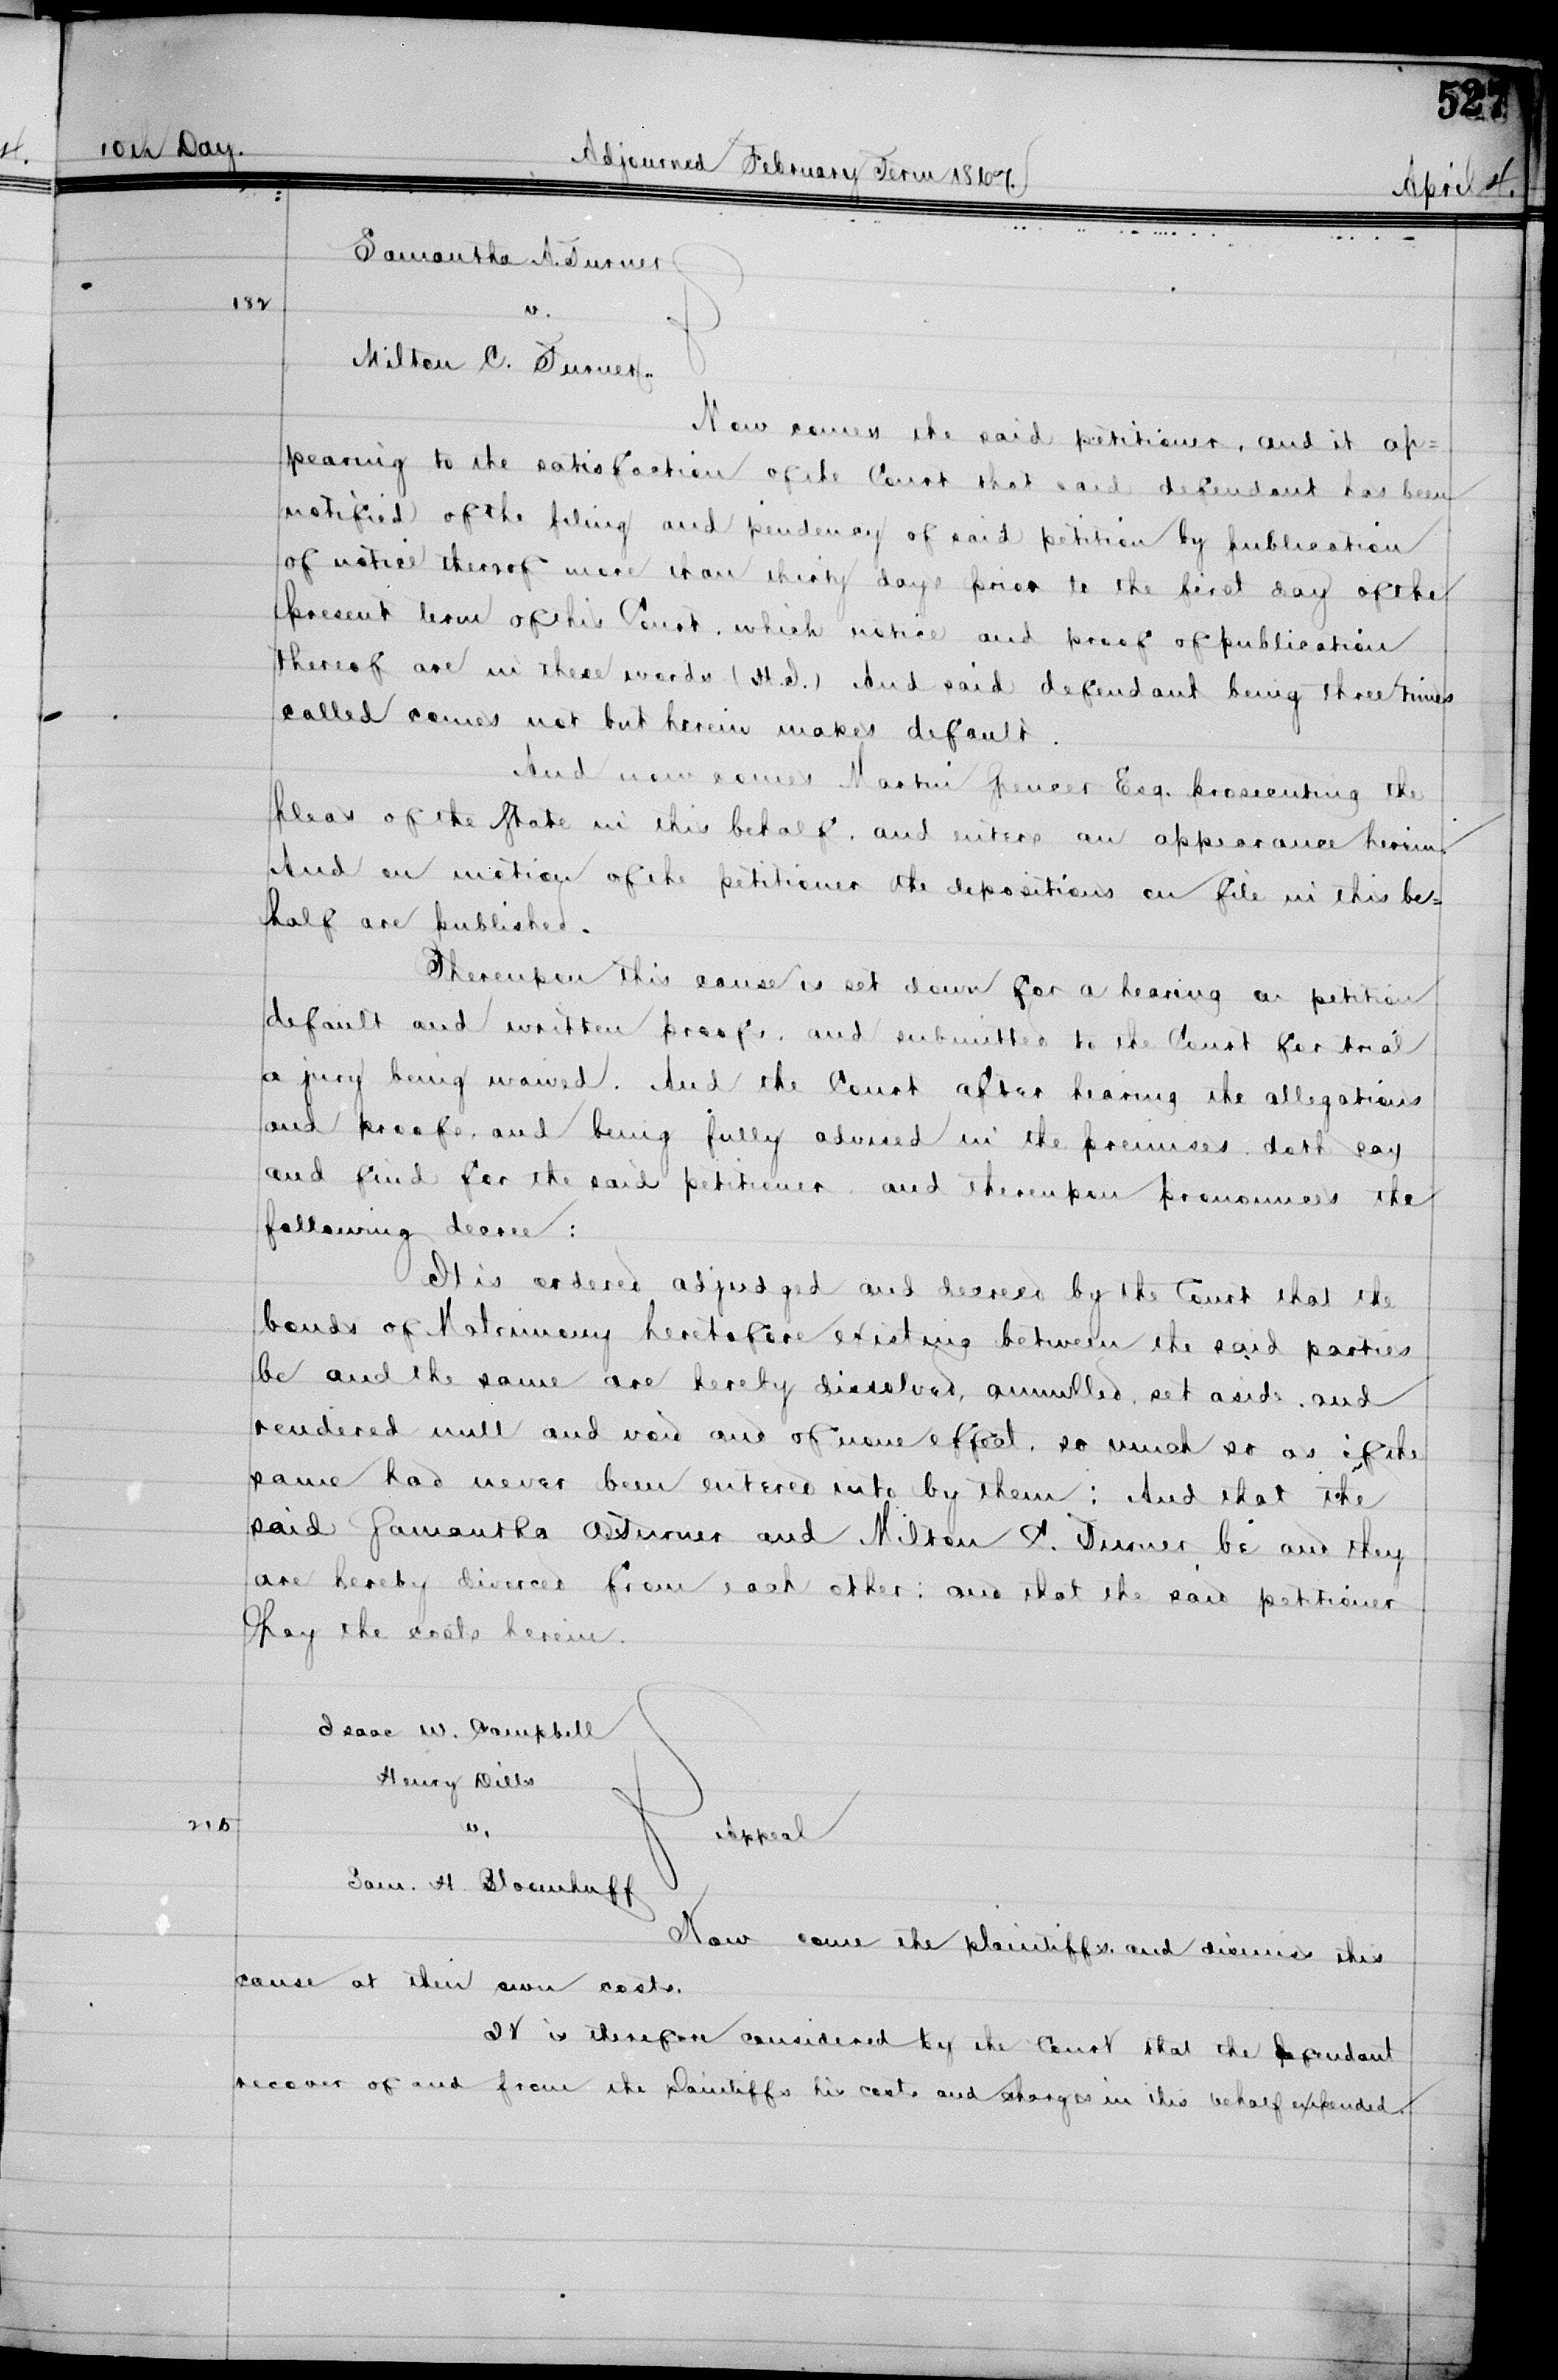 527
4.
10th Day. Adjourned February Term 1867. April 4.
Samantha A. Turner
182 v.
Milton C. Turner.
Now comes the said petitioner, and it ap=
pearing to the satisfaction of the Court that said defendant has been
notified of the filing and pendency of said petition by publication
of notice thereof more than thirty days prior to the first day of the
present term of this Court, which notice and proof of publication
thereof are in these words (H.I.) And said defendant being three times
called comes not but herein makes default.
And now comes Martin Spencer Esq. prosecuting the
pleas of the State in this behalf, and enters an appearance herein.
And on motion of the petitioner the depositions on file in this be=
half are published.
Thereupon this cause is set down for a hearing on petition
default and written proofs, and submitted to the Court for trial
a jury being waived. And the Court after hearing the allegations
and proofs, and being fully advised in the premises, doth say
and find for the said petitioner and thereupon pronounces the
following decree:
It is ordered adjudged and decreed by the Court that the
bonds of Matrimony heretofore existing between the said parties
be and the same are hereby dissolved, annulled, set aside, and
rendered null and void and of none effect, so much so as if the
same had never been entered into by them: And that the
said Samantha A. Turner and Milton C. Turner be and they
are hereby divorced from each other: and that the said petitioner
pay the costs herein.
Isaac W. Campbell
Henry Dills
215 v. Appeal
Sam. H. Bloomhuff
Now come the plaintiffs, and dismiss this
cause at their own costs.
It is therefore considered by the Court that the defendant
recover of and from the Plaintiffs his costs and charges in this behalf expended.